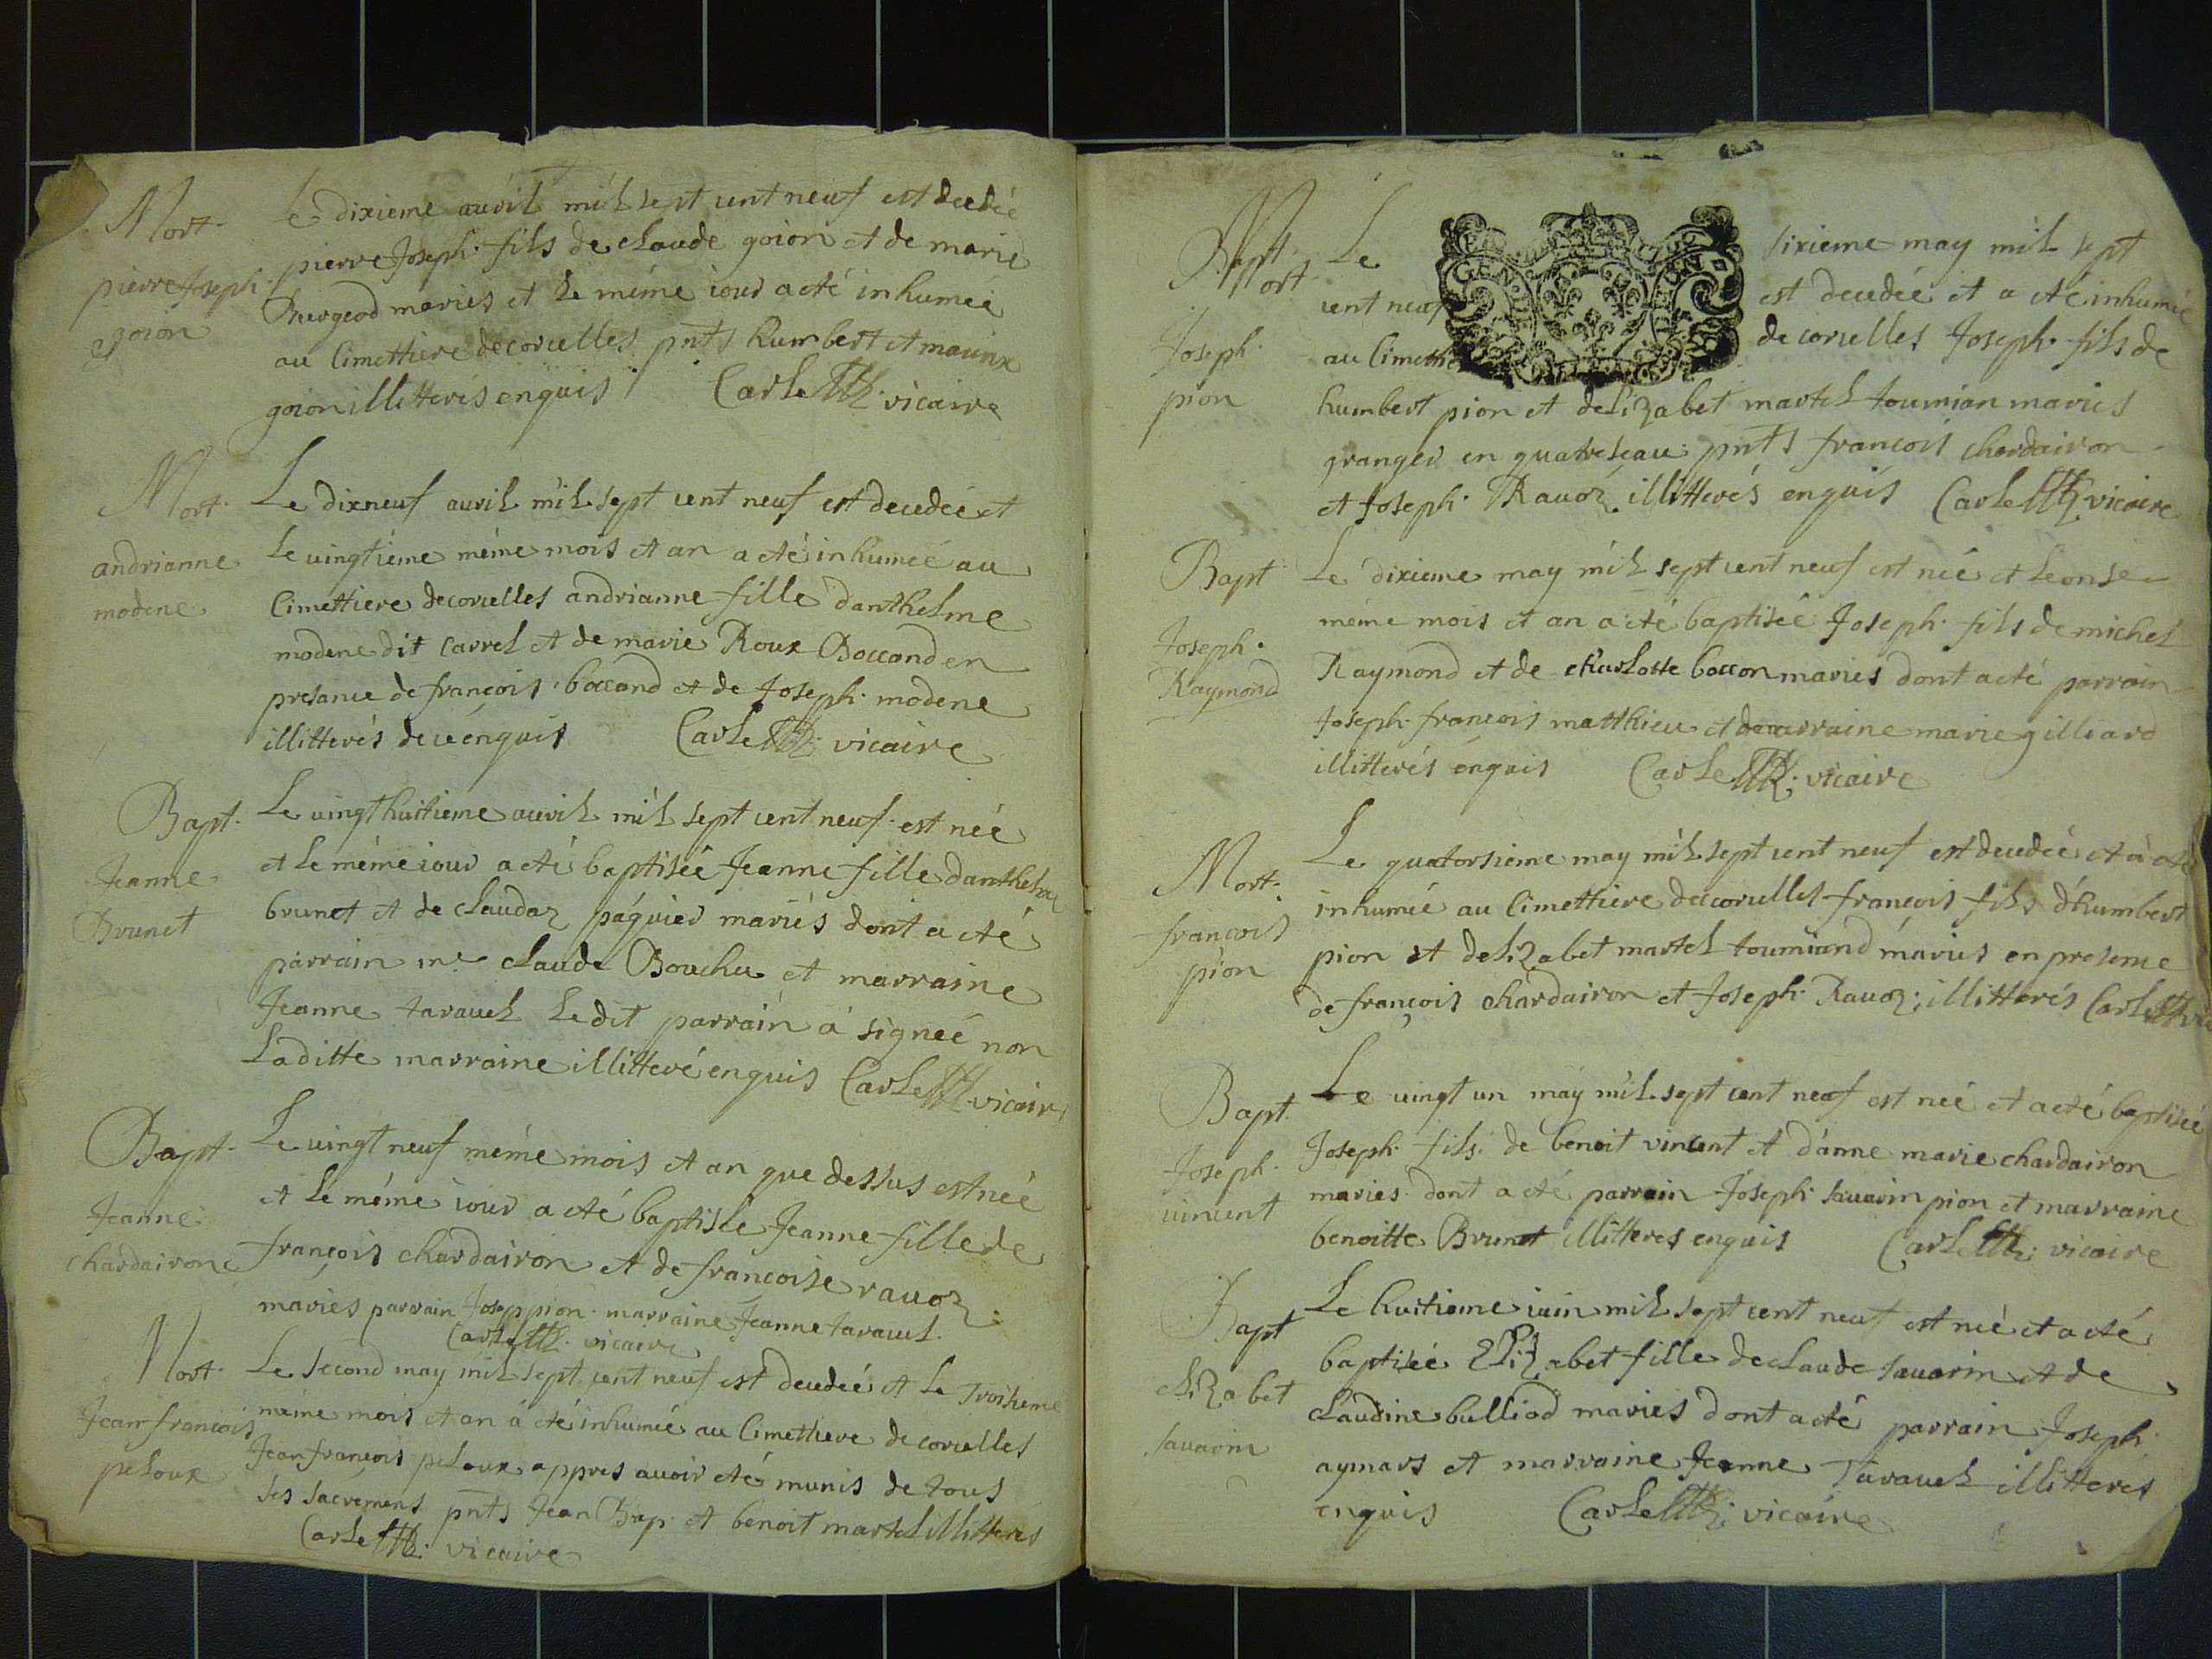 Mort.
pierre Joseph
goion
Le dixieme auril mil sept cent neuf est decedée
pierre Joseph fils de claude goion et de marie
Burgeod mariés et le méme iour a eté inhumée
au Cimettiere de corcelles pnts humbert et
goion illitterés enquis Carle vicaire
Mort.
andrianne
modene
Le dixneuf auril mil sept cent neuf est decedée et
le uingtiéme méme mois et an a eté inhumée au
Cimettiere de corcelles andrianne fille danthelme
modene dit carrel et de marie Roux Boccond en
presance de françois boccond et de Joseph modene
illitterés de cé enquis Carle vicaire
Bapt.
Jeanne
Brunet
Le uingt huitieme auril mil sept cent neuf est neé
et le méme iour a eté baptisée Jeanne fille danthelme
brunet et de claudaz páquier mariés dont a eté
parrain me claude Bouchu et marraine
Jeanne tarauel Le dit parrain a signeé non
Laditte marraine illitteré enquis Carle vicaire
Bapt.
Jeanne
chardairon
Le uingt neuf méme mois et an que dessus est neé
et le méme iour a eté baptisée Jeanne fille de
françois chardairon et de francoise rauoz
mariés parrain Josep pion marraine Jeanne tarauel.
Carle vicaire
Mort.
Jean francois
peloux
Le second may mil sept cent neuf est decedeé et le Troisieme
méme mois et an á eté inhumée au Cimettiere de corcelles
Jean francois peloux appres auoir eté munis de tous
sés sacremens pnts Jean Bap. et benoit martel illitteres
Carle vicaire
Bapt.
Mort.
Joseph
pion
GEN
Le sixieme may mil sept
cent neuf est decedée et a eté inhumé
au Cimettiere de corcelles Joseph fils de
humbert pion et delizabet martel toumian mariés
granger en quatreseau pnts françois chardairon
et Joseph Rauoz illitterés enquis Carle vicaire
Bapt.
Joseph
Raymond
Le dixieme may mil sept cent neuf est neé et le onse
méme mois et an a eté baptiseé Joseph fils de michel
Raymond et de charlotte boccon mariés dont a eté parrain
Joseph francois matthieu et marraine marie gilliard
illitterés enquis Carle vicaire
Mort.
francois
pion
Le quatorsiéme may mil sept cent neuf est decedeé et á eté
inhumée au Cimettiere de corcelles françois fils d'humbert
pion et delizabet martel toumiand mariés en presence
de françois chardairon et Joseph Rauoz illitterés Carle
Bapt.
Joseph
uincent
Le uingt un may mil sept cent neuf est neé et a eté baptisée
Joseph fils de benoit vincent et d'anne marie chardairon
maries dont a eté parrain Joseph sauarin pion et marraine
benoitte Brunet illitteres enquis Carle vicaire
Bapt
elizabet
sauarin
Le huitieme iuin mil sept cent neuf est neé et a eté
baptiseé Elizabet fille de claude sauarin et de
claudine bulliod mariés dont a eté parrain Joseph
aymars et marraine Jeanne Tarauel illitterés
enquis Carle vicaire